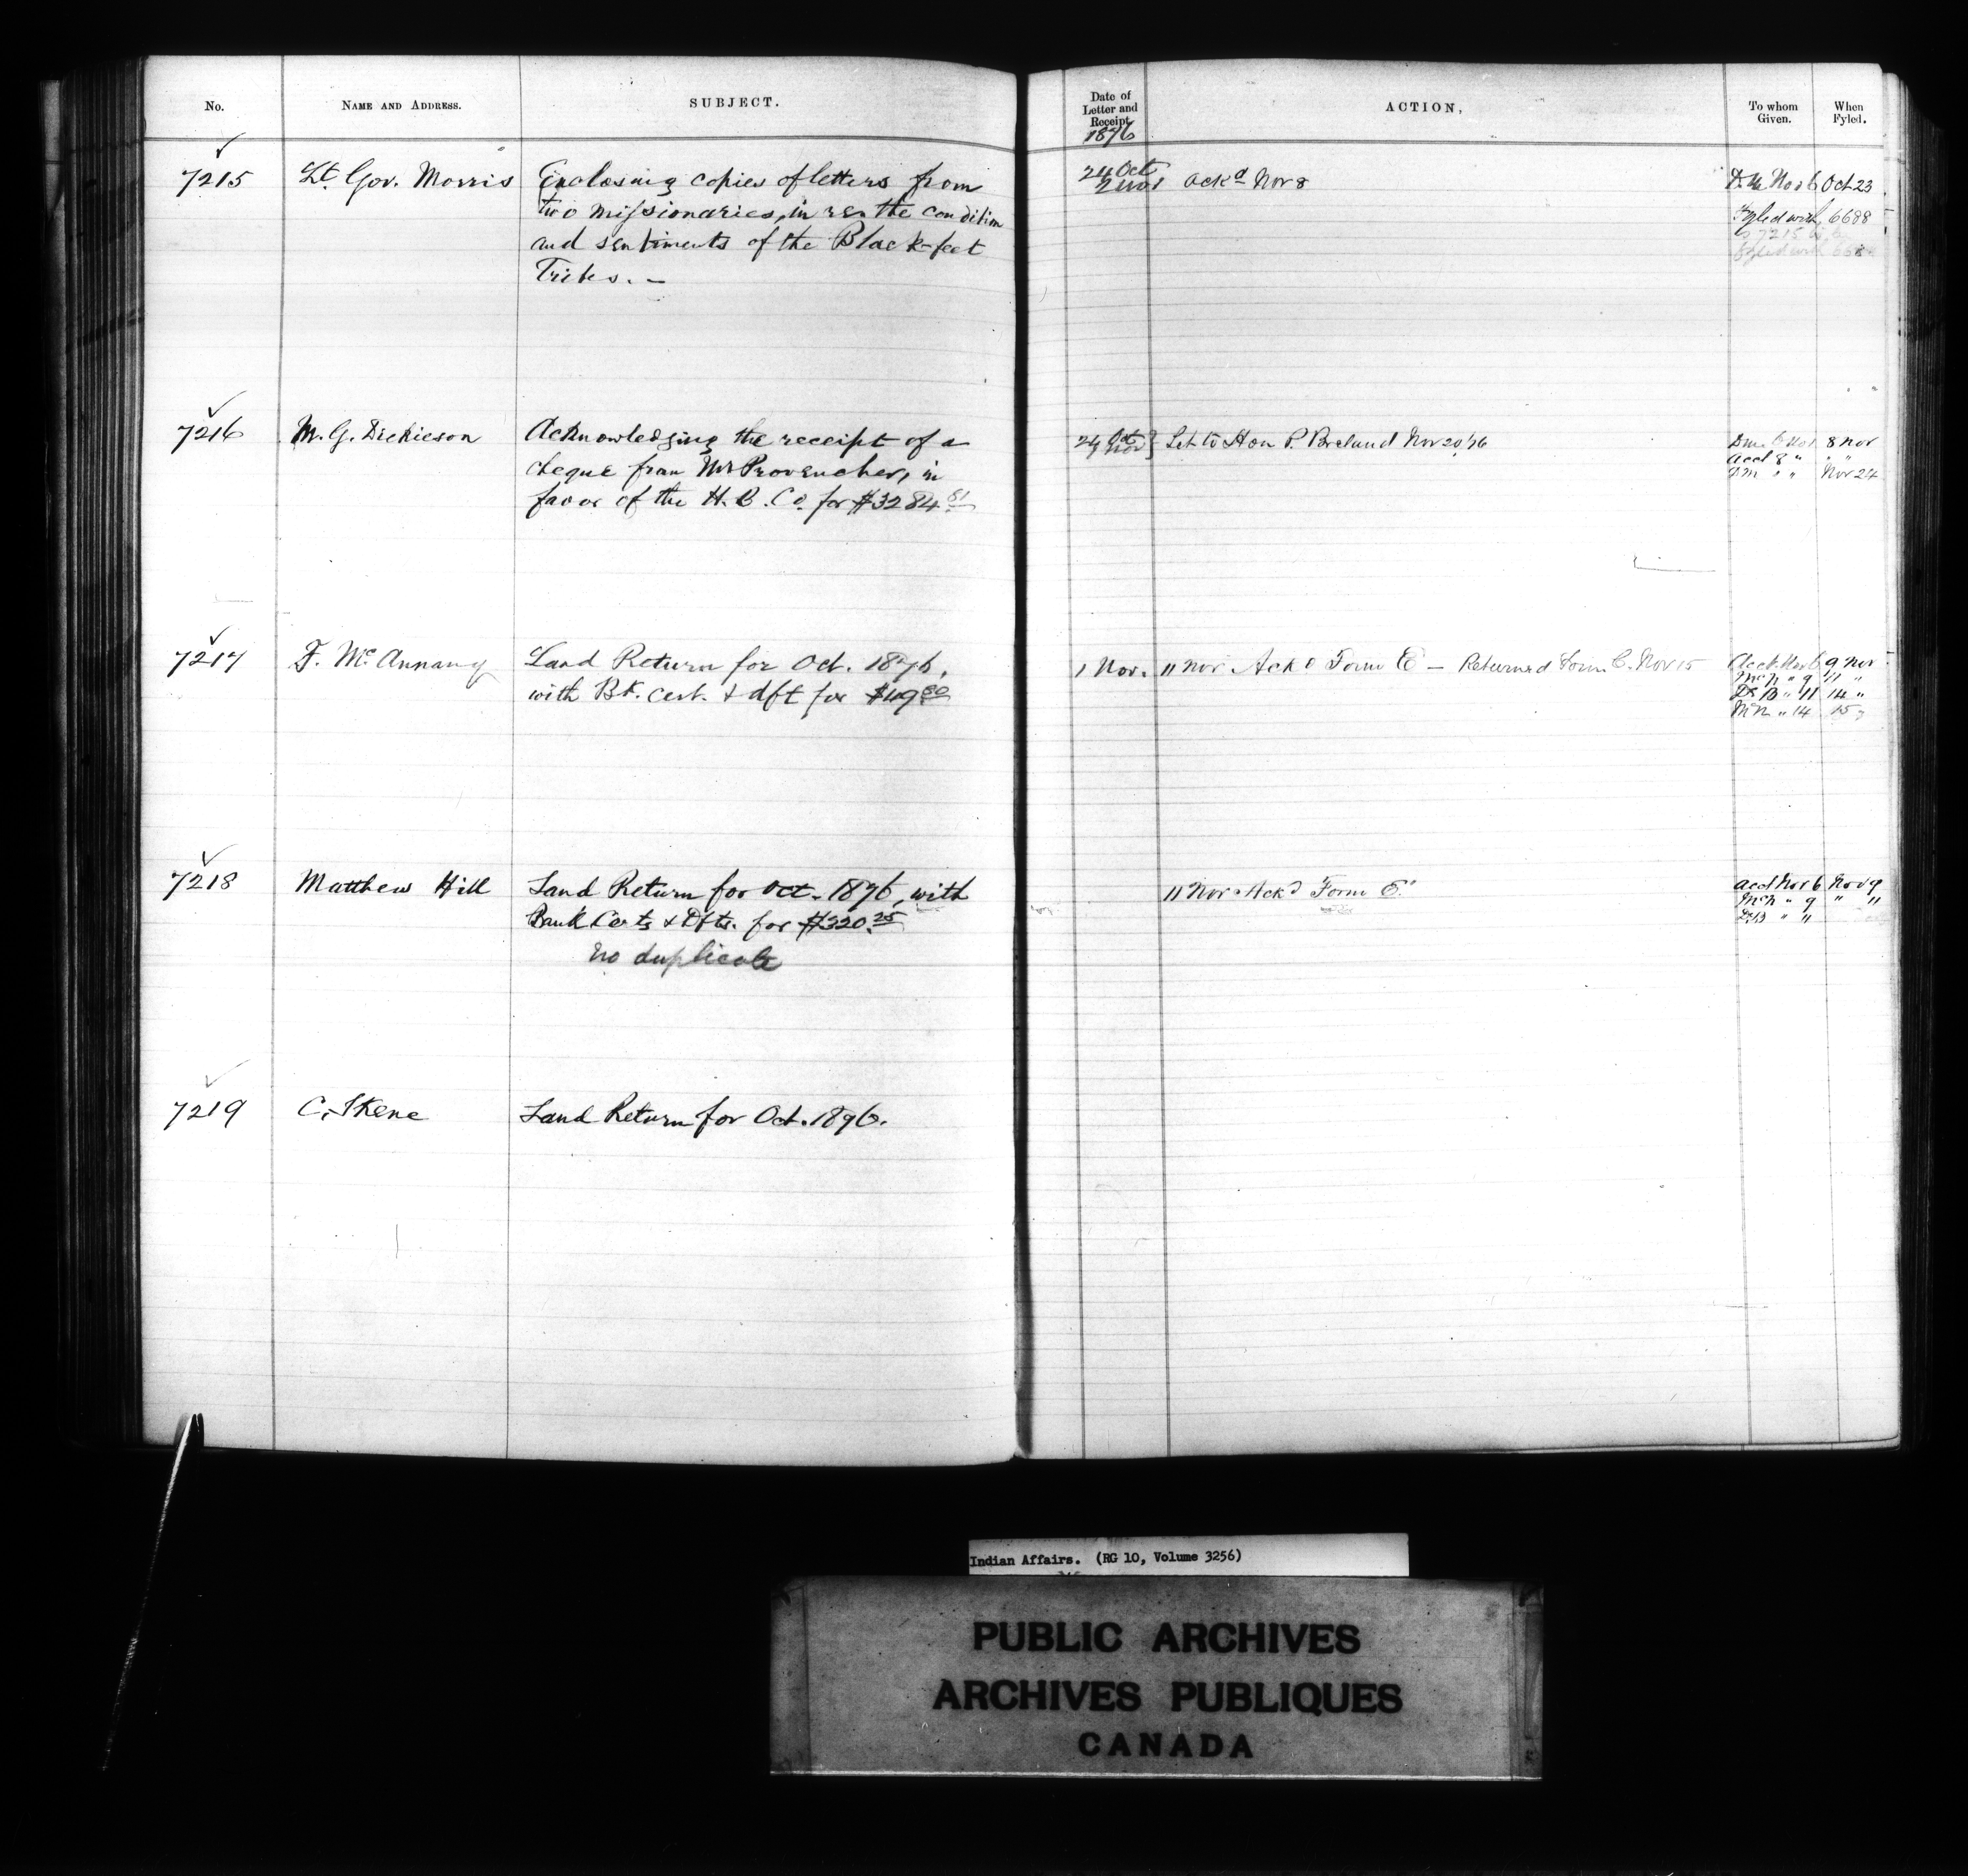 No.
NAME AND ADDRESS.
SUBJECT.
Date of
Letter and
Receipt.
1876
ACTION.
To whom
Given.
When
Fyled.
7215
Lt. Gov. Morris
Enclosing copies of letters from
two missionaries, in re the condition
and sentiments of the Black-feet
Tribes. –
24 Oct
2 Nov
Ackd Nov 8
Nov 6
Oct 23
Fyled with 6688
7215
fyled with
7216
M. G. Dickieson
Acknowledging the receipt of a
cheque from Mr Provencher, in
favor of the H. B. Co. for $3284.81
24 Oct
Nov
Let to Hon P. Breland Nov 20, 76
8 Nov
Acct 8 "
" "
" "
Nov 24
7217
F. McAnnany
Land Return for Oct. 1876,
with Bk. Cert. & dft for $49.80
1 Nov.
11 Nov Ackd Form E – Returned Form C. Nov 15
Acct Nov 6
9 Nov
McN " 9
11 "
DrB " 11
14 "
McN " 14
15 "
7218
Matthew Hill
Land Return for Oct. 1876, with
Bank Certs & Dfts. for $320.25
No duplicate
11 Nov Ackd Form E.
Acct Nov 6
Nov 9
McN " 9
" 11
DrB " 11
7219
C. Skene
Land Return for Oct. 1876.
Indian Affairs. (RG 10, Volume 3256)
PUBLIC ARCHIVES
ARCHIVES PUBLIQUES
CANADA